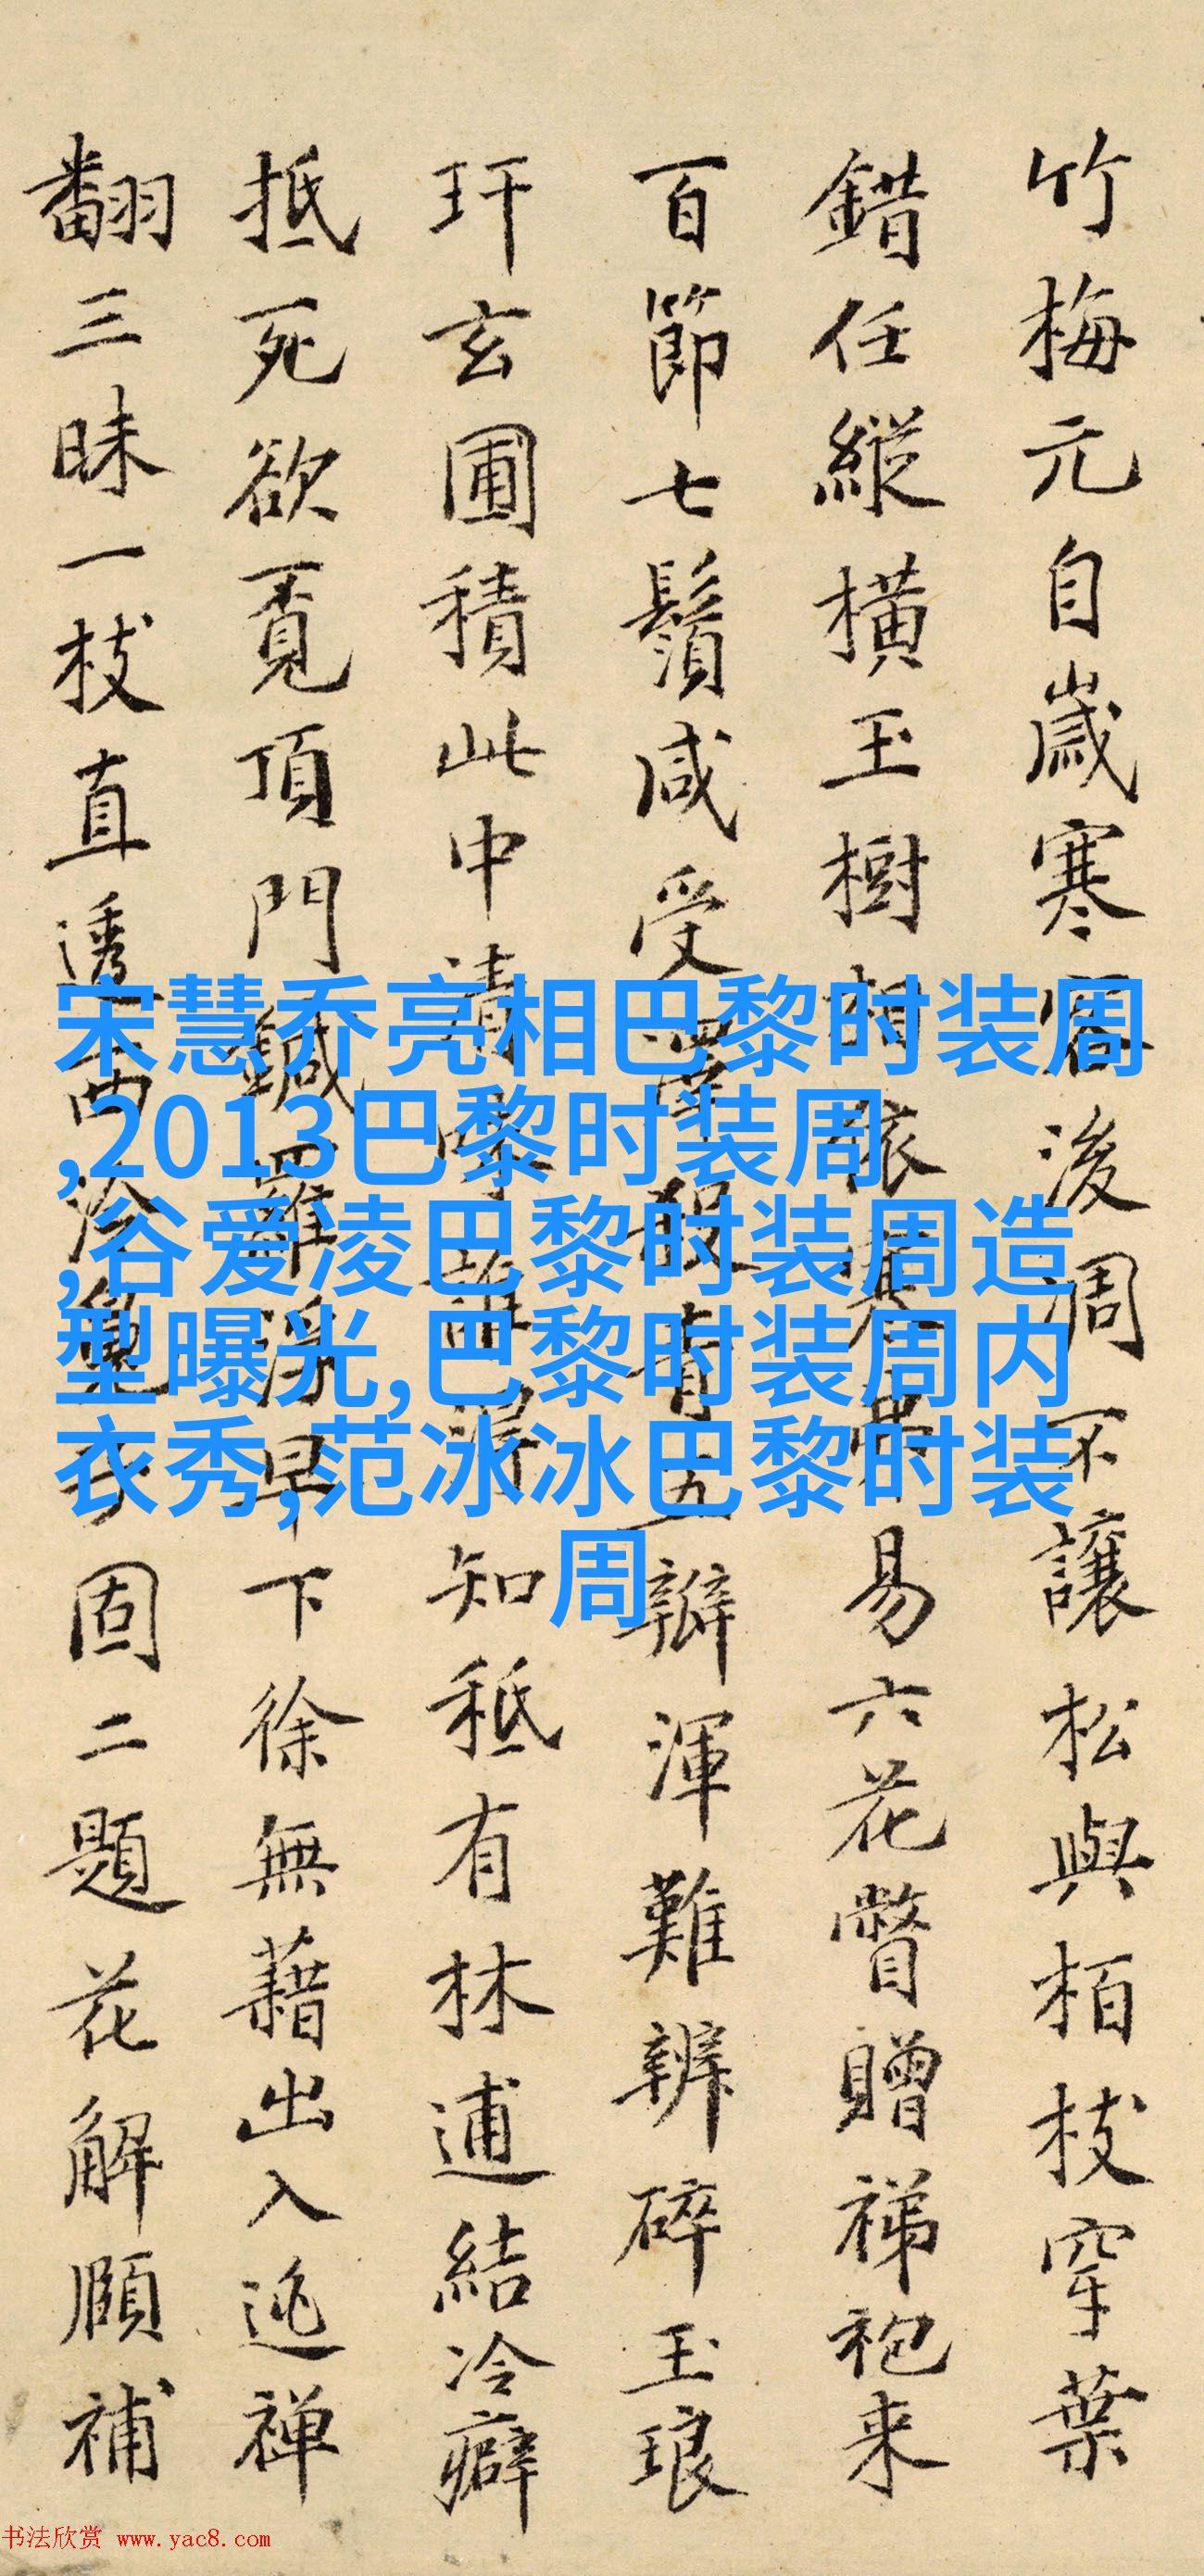 竹梅元自歲寒後凋不讓松與栢枝穿葉
錯任縱橫玉樹相依易六花瞥贈祶袍来
百節七鬚咸受五瓣渾難辨碎玉琅
玕玄圃積此中清知秪有林逋結冷癖
抵死欲覔頂門鍼羅浮早下徐無藉出入逃禅
翻三昧一枝直透西固二題花解頤補
宋慧乔亮相巴黎时装周
,2013巴黎时装周
,谷爱凌巴黎时装周造
型曝光,巴黎时装周内
衣秀,范冰冰巴黎时装
周
书法欣赏 www.yac8.com